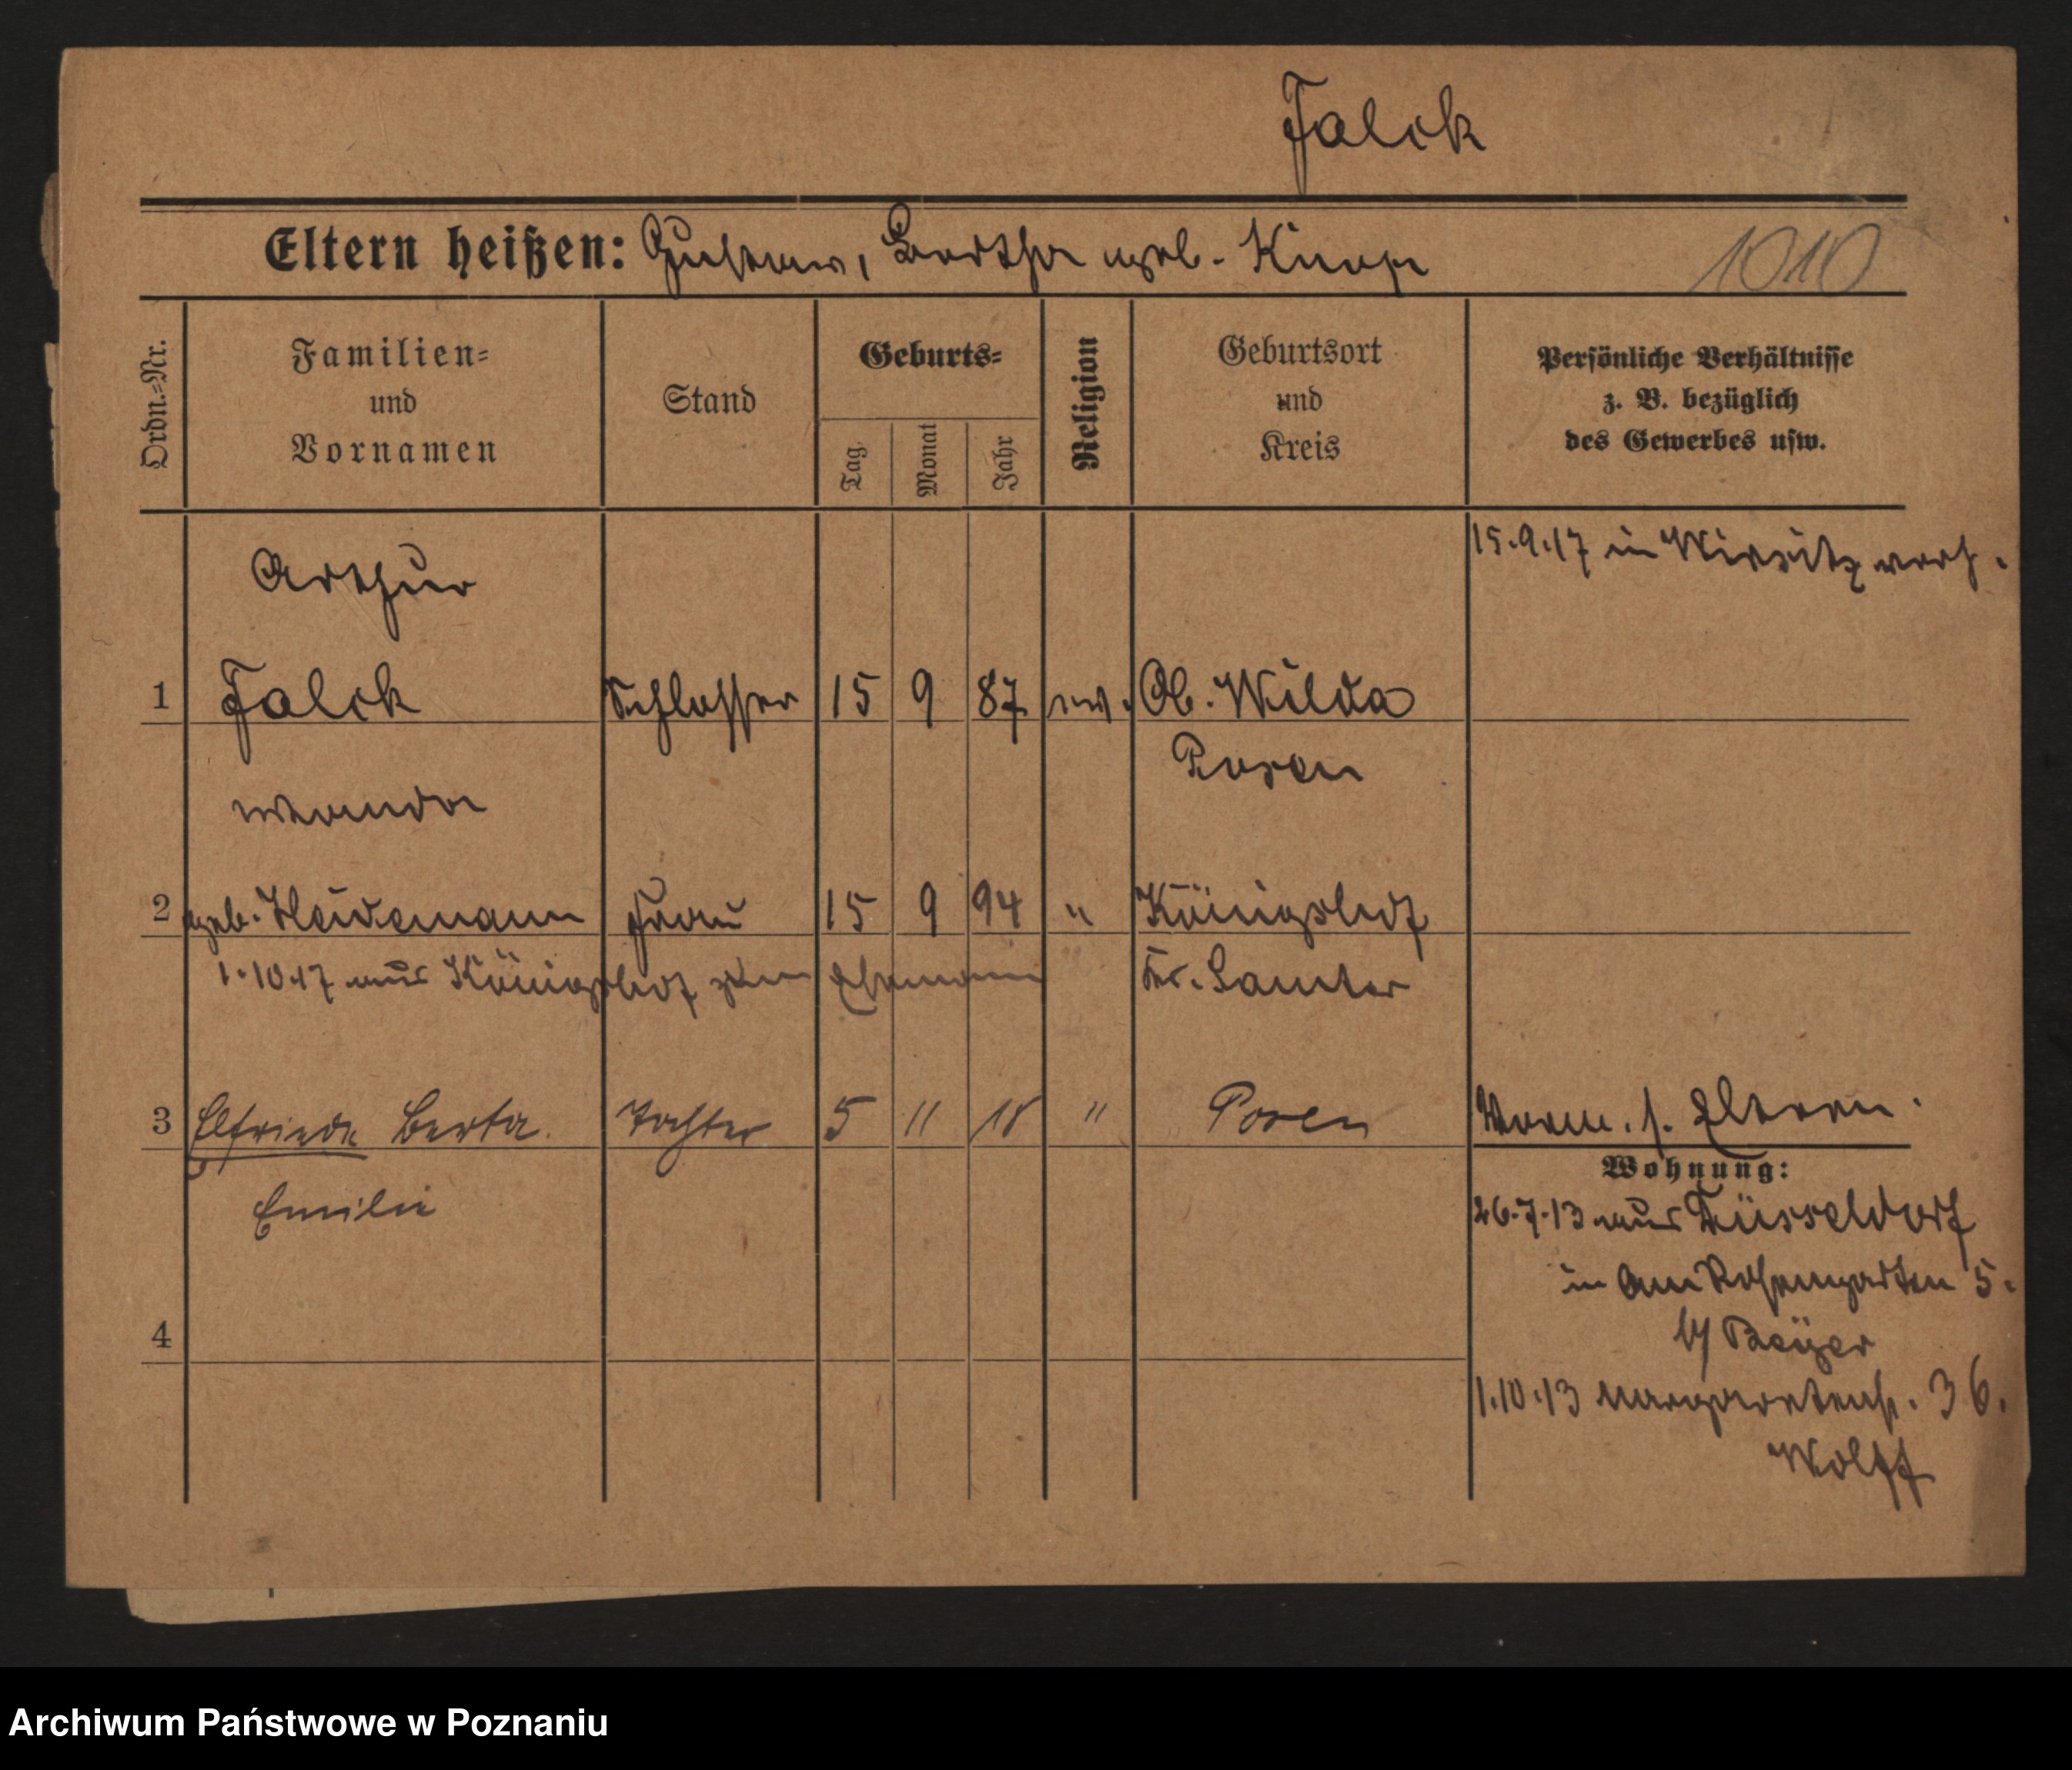 Falck
Eltern heißen: Gustav, Bertha geb. Knop
1010
Ordn.-Nr.
Familien-
und
Vornamen
Stand
Geburts-
Tag
Monat
Jahr
Religion
Geburtsort
und
Kreis
Persönliche Verhältnisse
z. B. bezüglich
des Gewerbes usw.
15.9.17 in Wirsitz verh.
Arthur
1 Falck Schlosser 15 9 87 ev. Ob. Wilda
Posen
Wanda
2 geb. Heidemann Frau 15 9 94 " Königshof
1.10.17 aus Königshof zum Ehemann Kr. Samter
3 Elfriede Berta Tochter 5 11 18 " Posen
Emilie
Vorm. s. Eltern.
Wohnung:
26.7.13 aus Düsseldorf
in Am Rosengarten 5.
b/ Beyer
4
1.10.13 Margaretenstr. 36.
Wolff
Archiwum Państwowe w Poznaniu